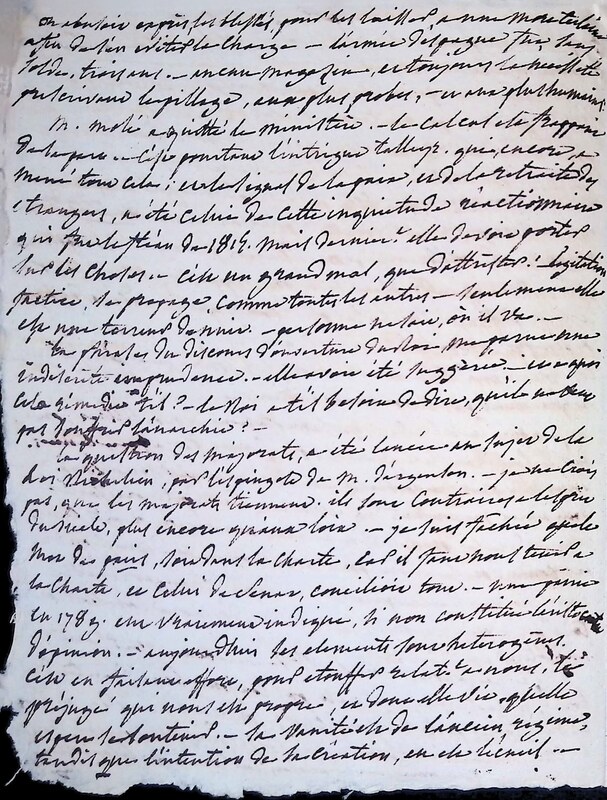 on enlevoit exprès, les blessés, pour les laisser à une mort
afin de s'en éviter la charge — l'armée d'espagne fut sans
solde, trois ans. — aucun magazin, et toujours la nécessité
prescrivant le pillage, aux plus probes, — et aux plus humains.
M. molé a quitté le ministère. — le calcul de
de la paix — c'est pourtant l'intrigue talleyr. que, encore, a
mené tout cela; et le signal de la paix, et de la retraite des
étrangers, a été celui de cette inquiétude réactionnaire
qui fut le fléau de 1815. mais dernier.t elle devoit porter
sur les choses. — c'est un grand mal, que d'attrister! — l'agitation
factice, se propage, comme toutes les autres — seulement elle
est une terreur de nuit — personne ne sait, où il va. —
la phrase du discours d'ouverture du Roi me paroit une
indiscrète imprudence. — elle a été suggérée — et à quoi
cela rémédie t'il? — le Roi a t'il besoin de dire, qu'il ne veut
pas souffrir l'anarchie? —
la question des majorats, a été lancée au sujet de la
dot Richelieu, par l'espingole de M. d'argenson. — je ne crois
pas, que les majorats tiennent. ils sont contraires à l'esprit
du siècle, plus encore qu'aux loix. — je suis fâchée que le
mot des pairs, soit dans la charte, car il faut nous tenir à
la charte, et celui de sénat, concilioit tout. — une pairie
en 1789. eut vraiment indiqué, si non constitué
d'opinion. — aujourd'hui ses elements sont heterogènes.
c'est en faisant effort, pour étouffer relat.t à nous, le
préjugé qui nous est propre, et dont elle vit, qu'elle
espère se soutenir. — la vanité est de l'ancien régime,
tandis que l'intention de sa création, en est l'écueil. —